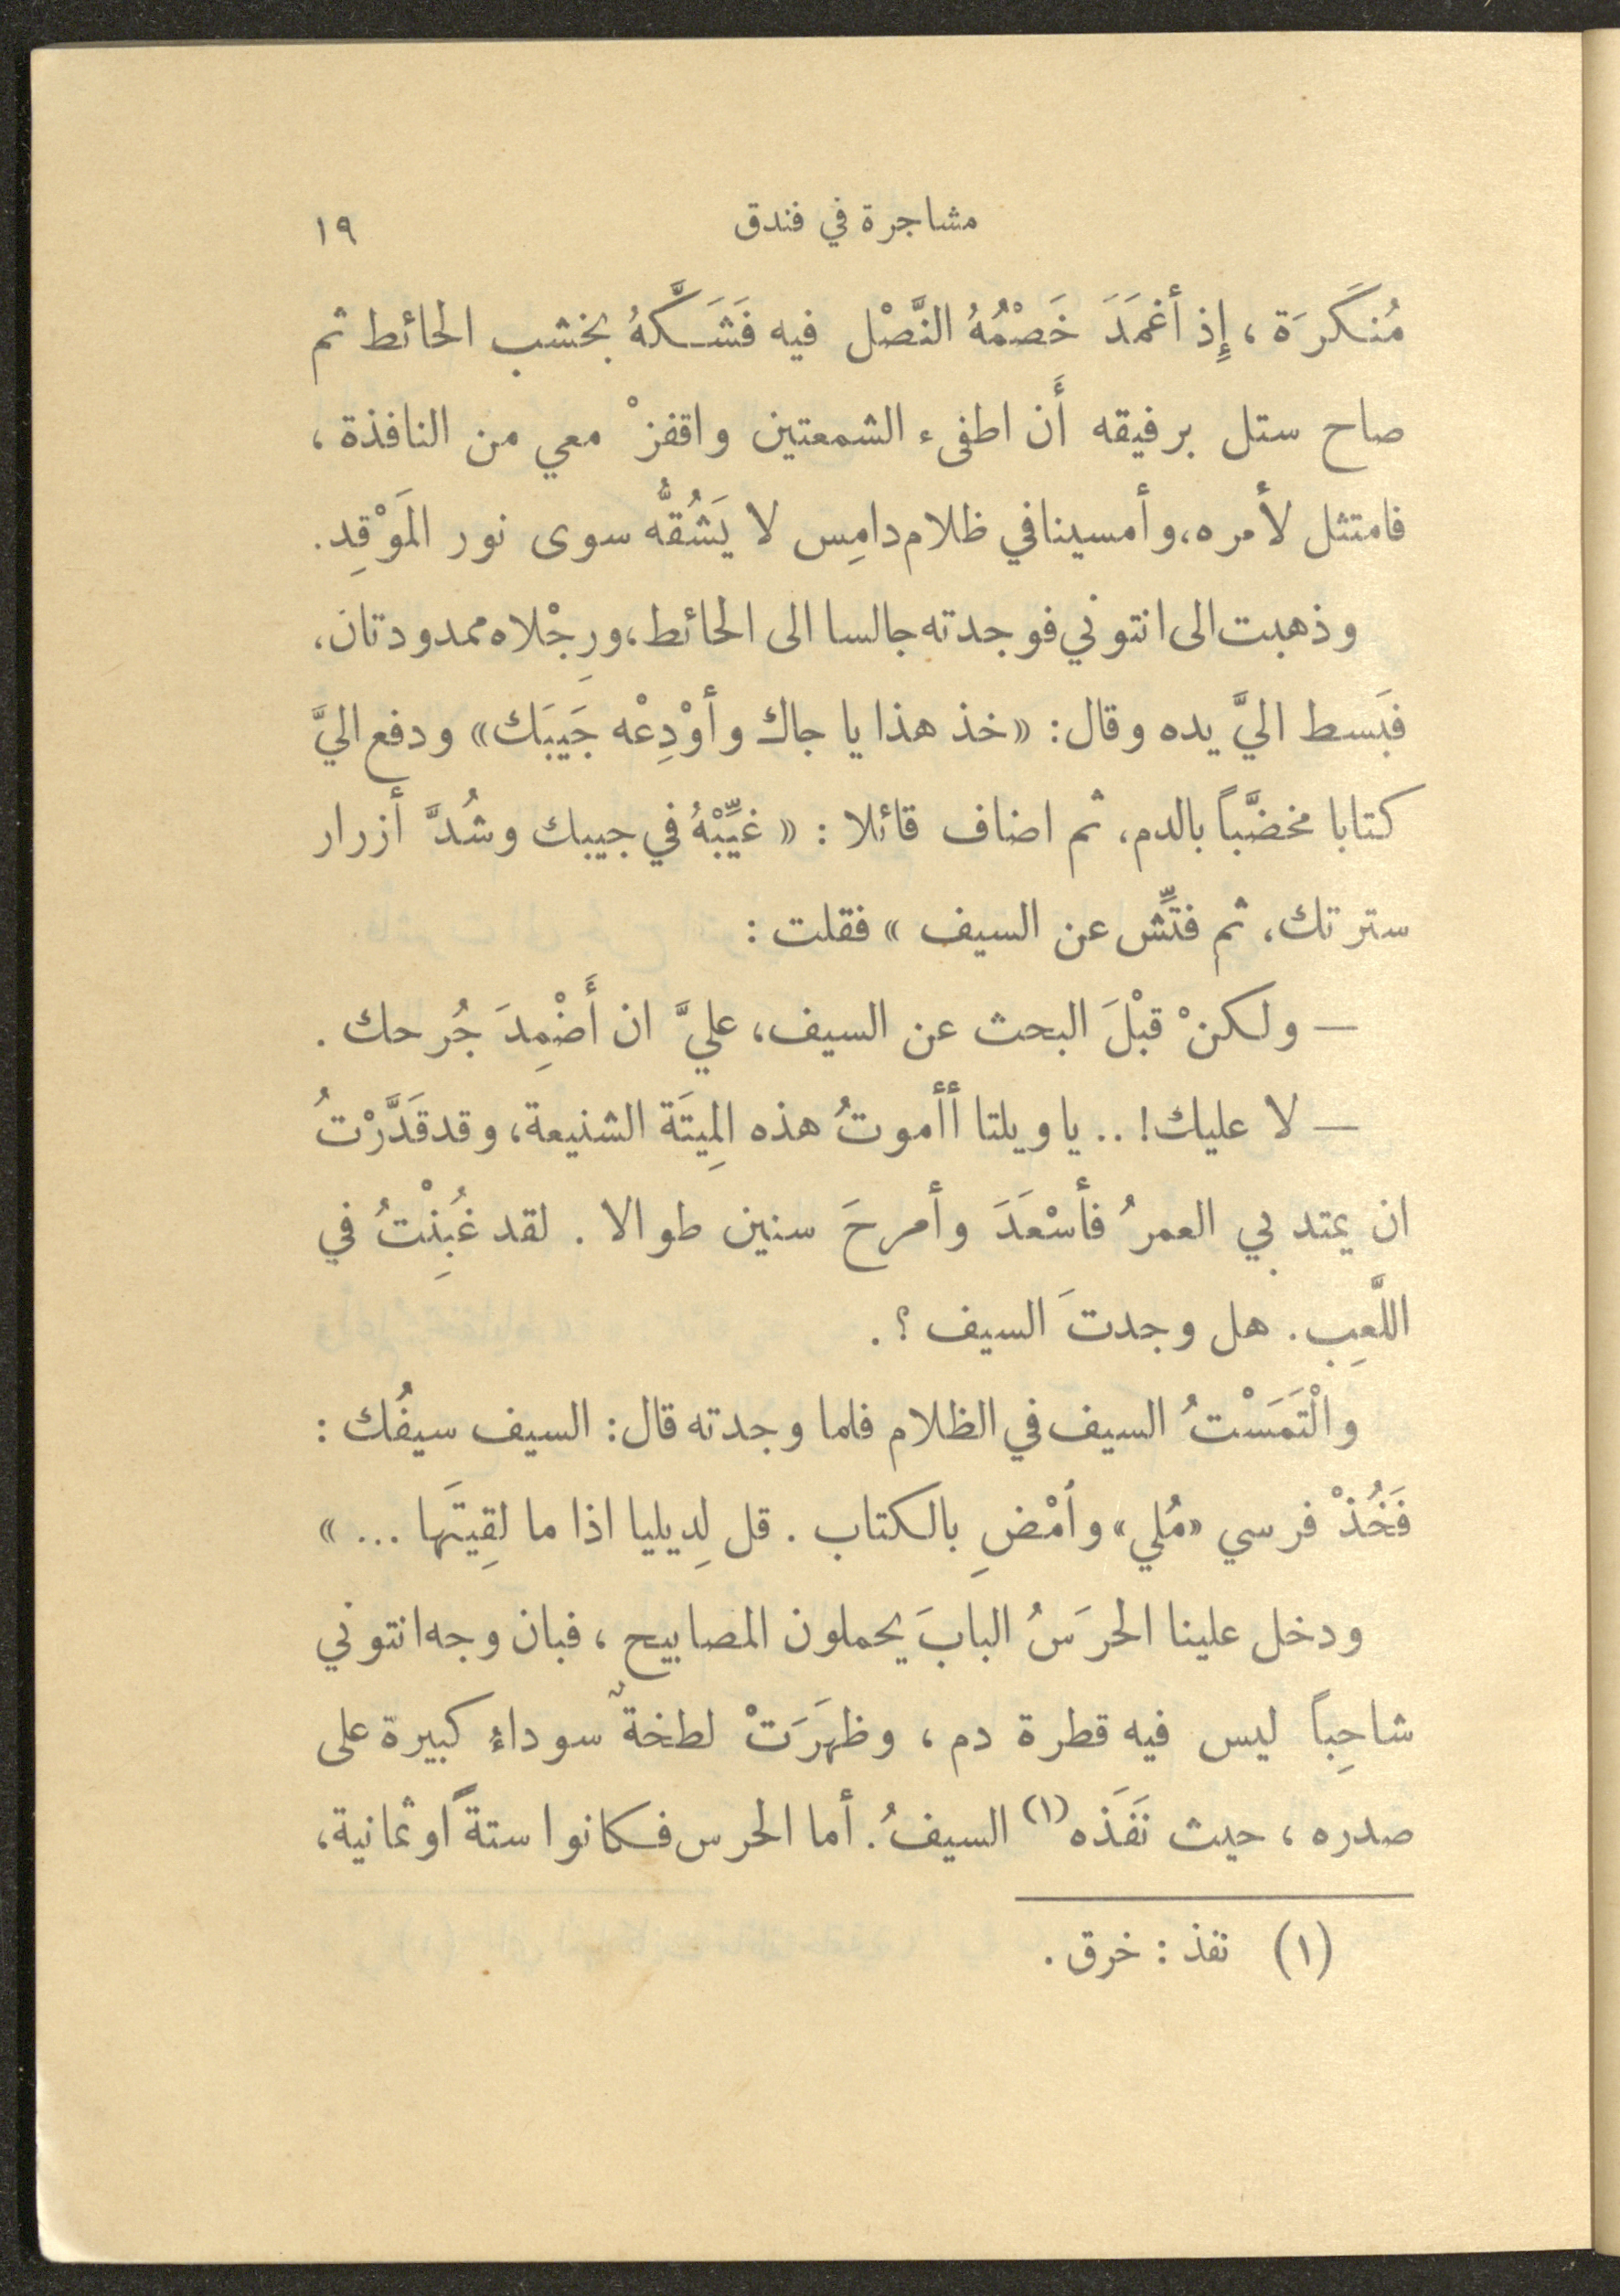 مشاجرة في فندق ١٩
مُنكَرَة ، إِذ أغمَدَ خَصْمُهُ النَّصْل فيه فَشَكَّهُ بخشب الحائط ثم
صاح ستل برفيقه أَن اطفىء الشمعتين واقفزْ معي من النافذة ،
فامتثل لأمره، وأمسينا في ظلام دامِس لا يَشُقُّه سوى نور المَوْقِد .
وذهبت الى انتوني فوجدته جالسا الى الحائط، ورِجْلاه ممدودتان ،
فبَسط اليَّ يده وقال: «خذ هذا يا جاك وأوْدِعْه جَيبَك» ودفع اليَّ
كتابا مخضَّباً بالدم، ثم اضاف قائلا : « غيِّبْهُ في جيبك وشُدَّ أزرار
سترتك، ثم فتِّش عن السيف » فقلت :
— ولكنْ قبْلَ البحث عن السيف، عليَّ ان أَضْمِدَ جُرحك .
— لا عليك! .. يا ويلتا أأموتُ هذه المِيتَة الشنيعة، وقد قَدَّرْتُ
ان يمتد بي العمرُ فأسْعَدَ وأمرحَ سنين طوالا . لقد غُبِنْتُ في
اللَّعِب. هل وجدتَ السيف ؟ .
والْتَمَسْتُ السيف في الظلام فلما وجدته قال: السيف سيفُك :
فَخُذْ فرسي «مُلي» وأمْضِ بالكتاب . قل لِديليا اذا ما لقِيتَها ... »
ودخل علينا الحرَسُ البابَ يحملون المصابيح ، فبان وجه انتوني
شاحِباً ليس فيه قطرة دم ، وظهَرَتْ لطخةٌ سوداءُ كبيرة على
صدره ، حيث نَفَذَه (١) السيفُ. أما الحرس فكانوا ستةً او ثمانية،
(١) نفذ : خرق .